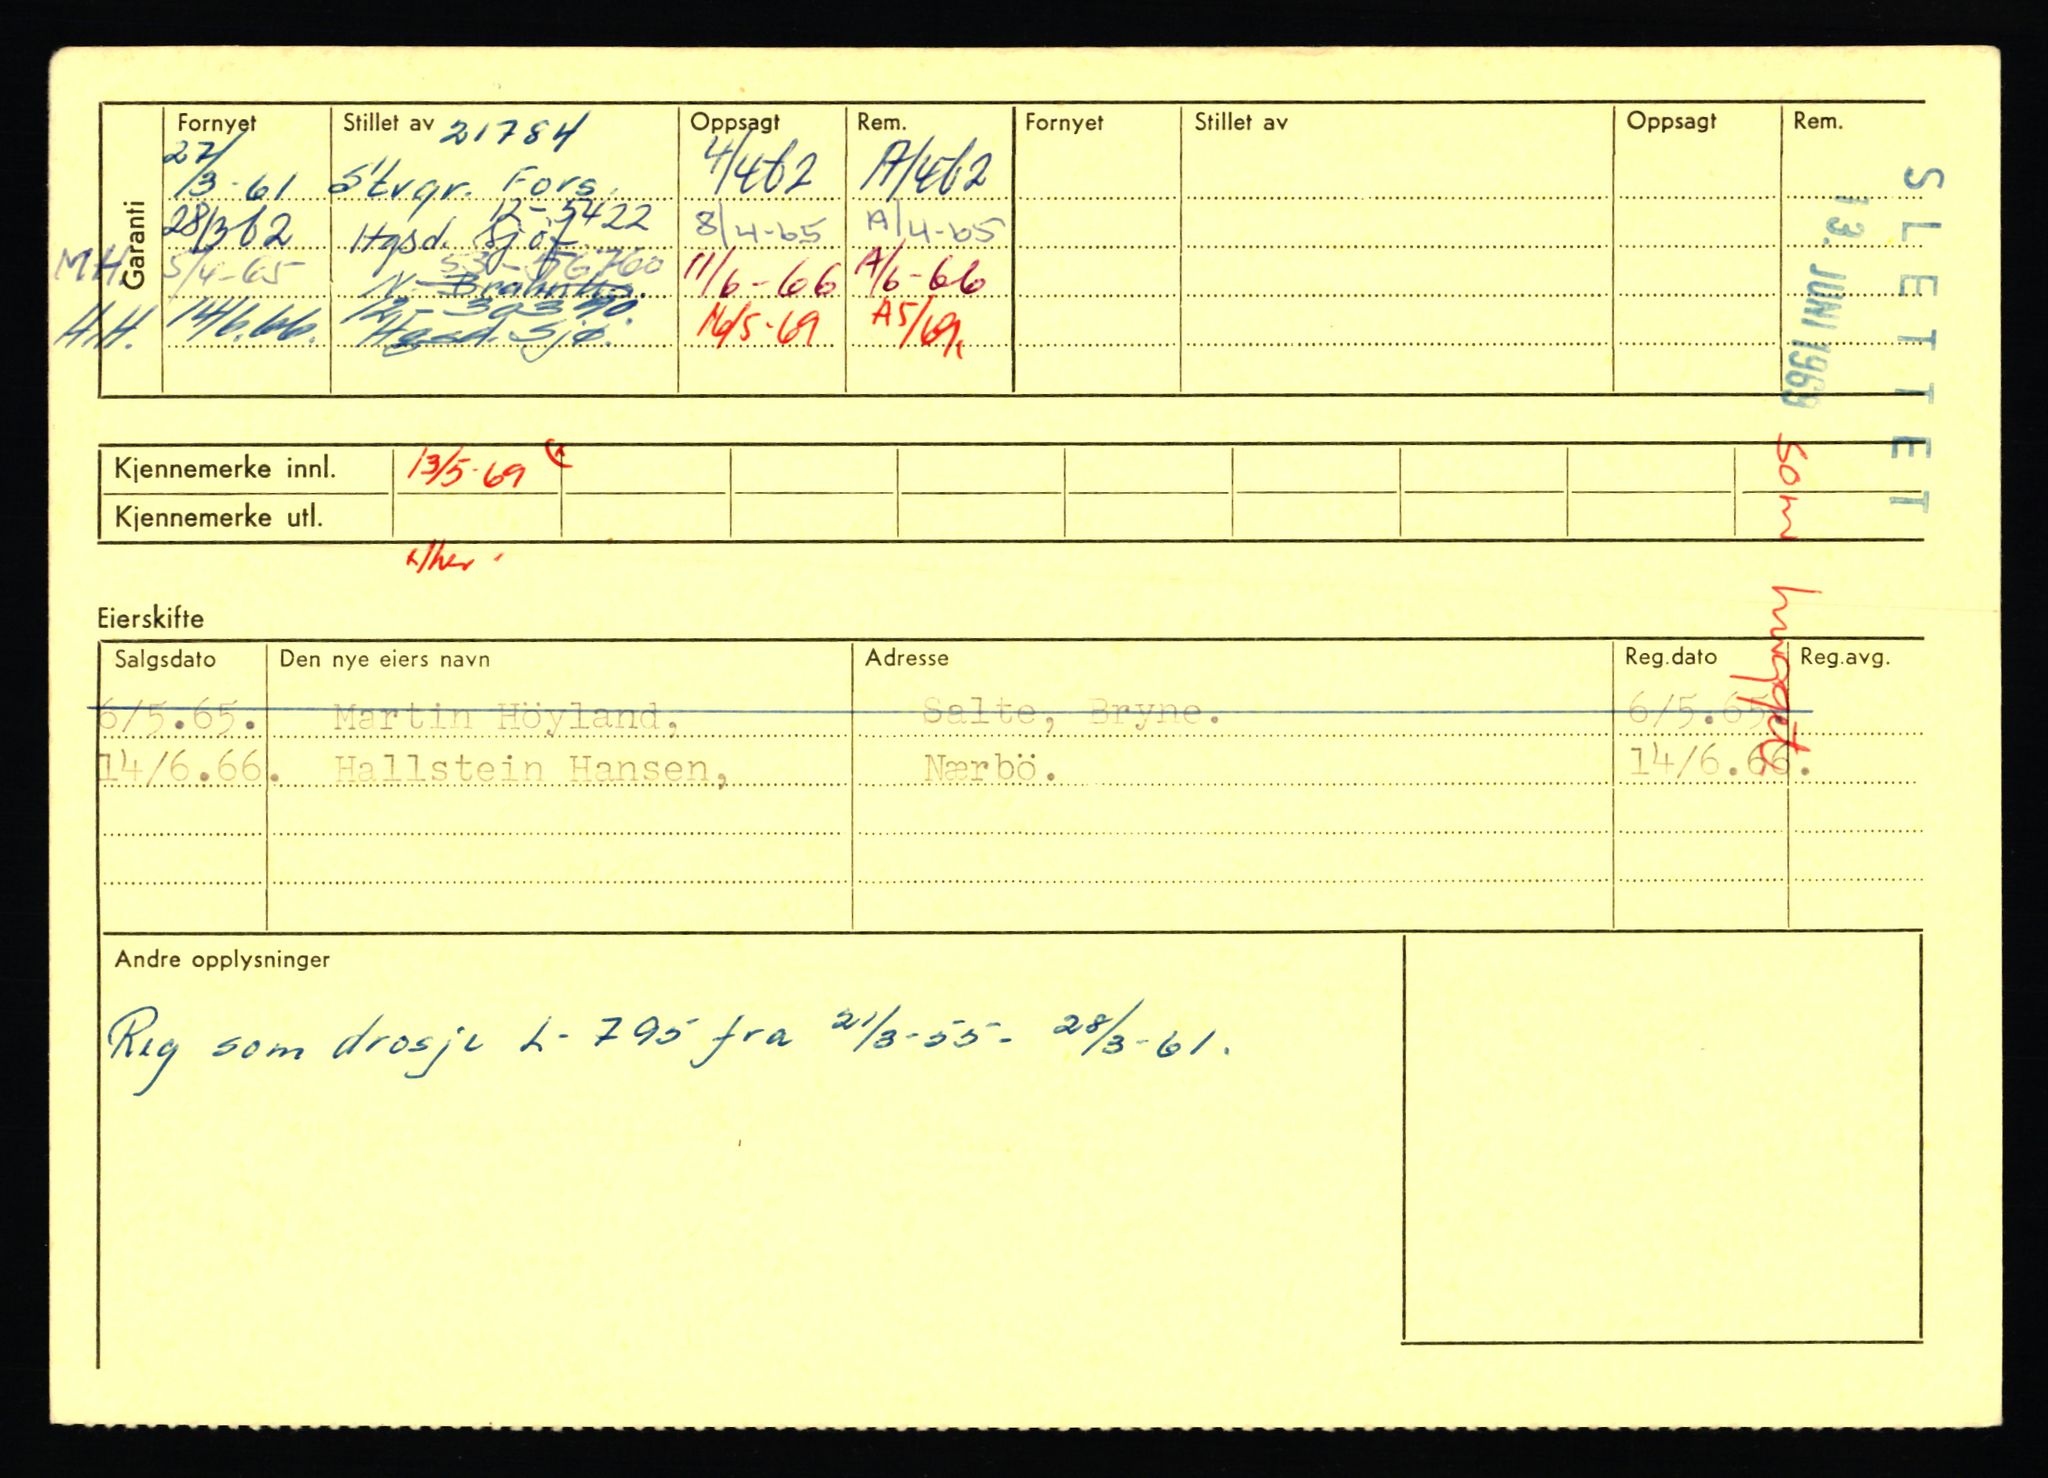 Garanti
Fornyet Stillet av 21784 Oppsagt Rem. Fornyet Stillet av Oppsagt Rem.
27/3-61 Stvgr. Fors. 4/4 62 A/4 62
12-5422
28/3 62 Hgsd. Sjø 8/4-65 A/4-65
53-56760
M.H. 5/4-65 N. 11/6-66 A/6-66
H.H. 14/6.66. Hgsd. Sjø. 16/5-69 A5/69
SLETTET
13. JUNI 1969
som hugget
Kjennemerke innl. 13/5-69
Kjennemerke utl.
Eierskifte
Salgsdato Den nye eiers navn Adresse Reg.dato Reg.avg.
6/5.65. Martin Höyland, Salte, Bryne. 6/5.65.
14/6.66. Hallstein Hansen, Nærbö. 14/6.66.
Andre opplysninger
Reg som drosje L-795 fra 21/3-55- 28/3-61.